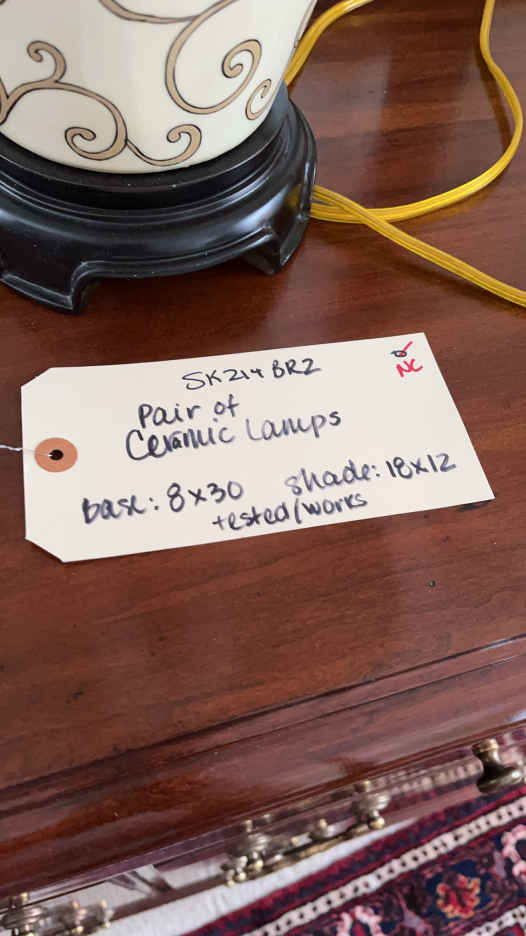 SK214 BR2
NC
Pair of
Ceramic Lamps
base: 8x30 shade: 18x12
tested/works